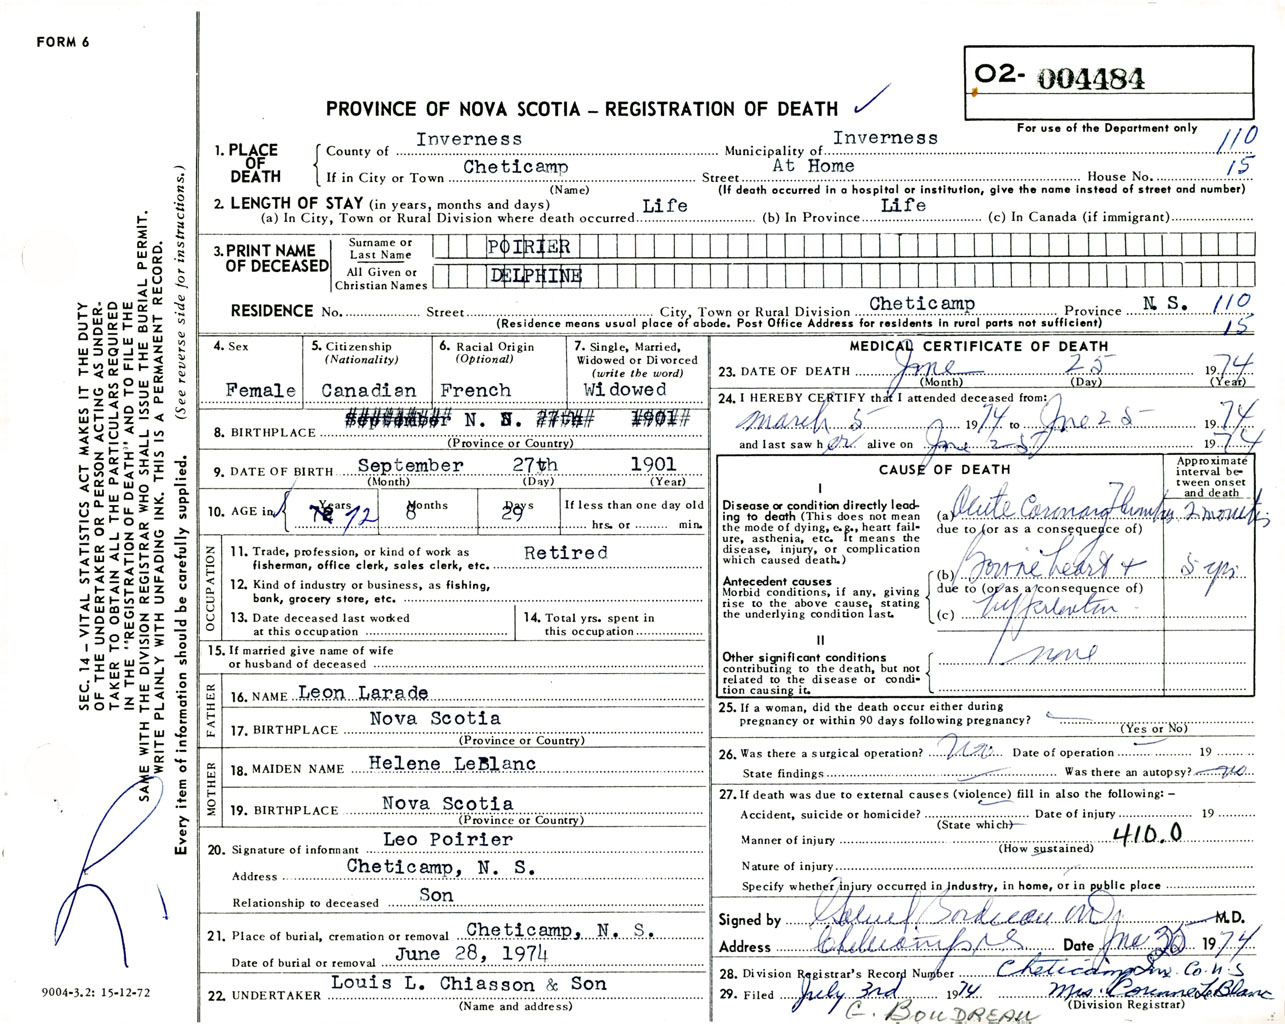 FORM 6
O2- 004484
PROVINCE OF NOVA SCOTIA – REGISTRATION OF DEATH ✓
For use of the Department only
1. PLACE OF DEATH
County of Inverness Municipality of Inverness 110
If in City or Town Cheticamp Street At Home House No. 15
(Name) (If death occurred in a hospital or institution, give the name instead of street and number)
2. LENGTH OF STAY (in years, months and days)
(a) In City, Town or Rural Division where death occurred Life (b) In Province Life (c) In Canada (if immigrant)
3. PRINT NAME OF DECEASED
Surname or Last Name POIRIER
All Given or Christian Names DELPHINE
RESIDENCE No. Street City, Town or Rural Division Cheticamp Province N. S. 110
(Residence means usual place of abode. Post Office Address for residents in rural parts not sufficient) 15
4. Sex
Female
5. Citizenship (Nationality)
Canadian
6. Racial Origin (Optional)
French
7. Single, Married, Widowed or Divorced (write the word)
Widowed
8. BIRTHPLACE September N. S. 27th 1901
(Province or Country)
9. DATE OF BIRTH September 27th 1901
(Month) (Day) (Year)
10. AGE in Years Months Days If less than one day old
72 8 29 hrs. or min.
OCCUPATION
11. Trade, profession, or kind of work as fisherman, office clerk, sales clerk, etc. Retired
12. Kind of industry or business, as fishing, bank, grocery store, etc.
13. Date deceased last worked at this occupation
14. Total yrs. spent in this occupation
15. If married give name of wife or husband of deceased
FATHER
16. NAME Leon Larade
17. BIRTHPLACE Nova Scotia
(Province or Country)
MOTHER
18. MAIDEN NAME Helene LeBlanc
19. BIRTHPLACE Nova Scotia
(Province or Country)
20. Signature of informant Leo Poirier
Address Cheticamp, N. S.
Relationship to deceased Son
21. Place of burial, cremation or removal Cheticamp, N. S.
Date of burial or removal June 28, 1974
22. UNDERTAKER Louis L. Chiasson & Son
(Name and address)
MEDICAL CERTIFICATE OF DEATH
23. DATE OF DEATH June 25 1974
(Month) (Day) (Year)
24. I HEREBY CERTIFY that I attended deceased from:
march 5 1974 to June 25 1974
and last saw h er alive on June 25 1974
CAUSE OF DEATH
Approximate interval between onset and death
I
Disease or condition directly leading to death (This does not mean the mode of dying, e.g., heart failure, asthenia, etc. It means the disease, injury, or complication which caused death.)
(a) Acute Coronary 2 months
due to (or as a consequence of)
Antecedent causes
Morbid conditions, if any, giving rise to the above cause, stating the underlying condition last.
(b) heart + 5 yrs
due to (or as a consequence of)
(c)
II
Other significant conditions contributing to the death, but not related to the disease or condition causing it.
none
25. If a woman, did the death occur either during pregnancy or within 90 days following pregnancy?
(Yes or No)
26. Was there a surgical operation? No Date of operation 19
State findings Was there an autopsy? no
27. If death was due to external causes (violence) fill in also the following: –
Accident, suicide or homicide? Date of injury 19
(State which)
Manner of injury 410.0
(How sustained)
Nature of injury
Specify whether injury occurred in Industry, in home, or in public place
Signed by Boudreau MD M.D.
Address Cheticamp NS Date June 1974
28. Division Registrar's Record Number Cheticamp Inv. Co. N S
29. Filed July 3rd 1974 Mrs. Corinne LeBlanc
(Division Registrar)
C. BOUDREAU
SEC. 14 – VITAL STATISTICS ACT MAKES IT THE DUTY
OF THE UNDERTAKER OR PERSON ACTING AS UNDER-
TAKER TO OBTAIN ALL THE PARTICULARS REQUIRED
IN THE "REGISTRATION OF DEATH" AND TO FILE THE
SAME WITH THE DIVISION REGISTRAR WHO SHALL ISSUE THE BURIAL PERMIT.
WRITE PLAINLY WITH UNFADING INK. THIS IS A PERMANENT RECORD.
Every item of information should be carefully supplied. (See reverse side for instructions.)
9004-3.2: 15-12-72